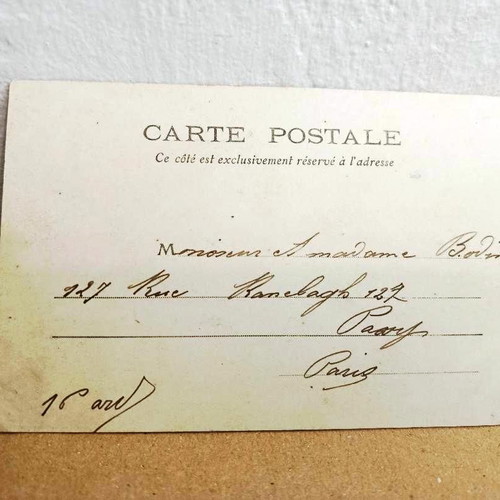 CARTE POSTALE
Ce côté est exclusivement réservé à l'adresse
Monsieur et madame Bodin
127 Rue Ranelagh 127
Passy
Paris